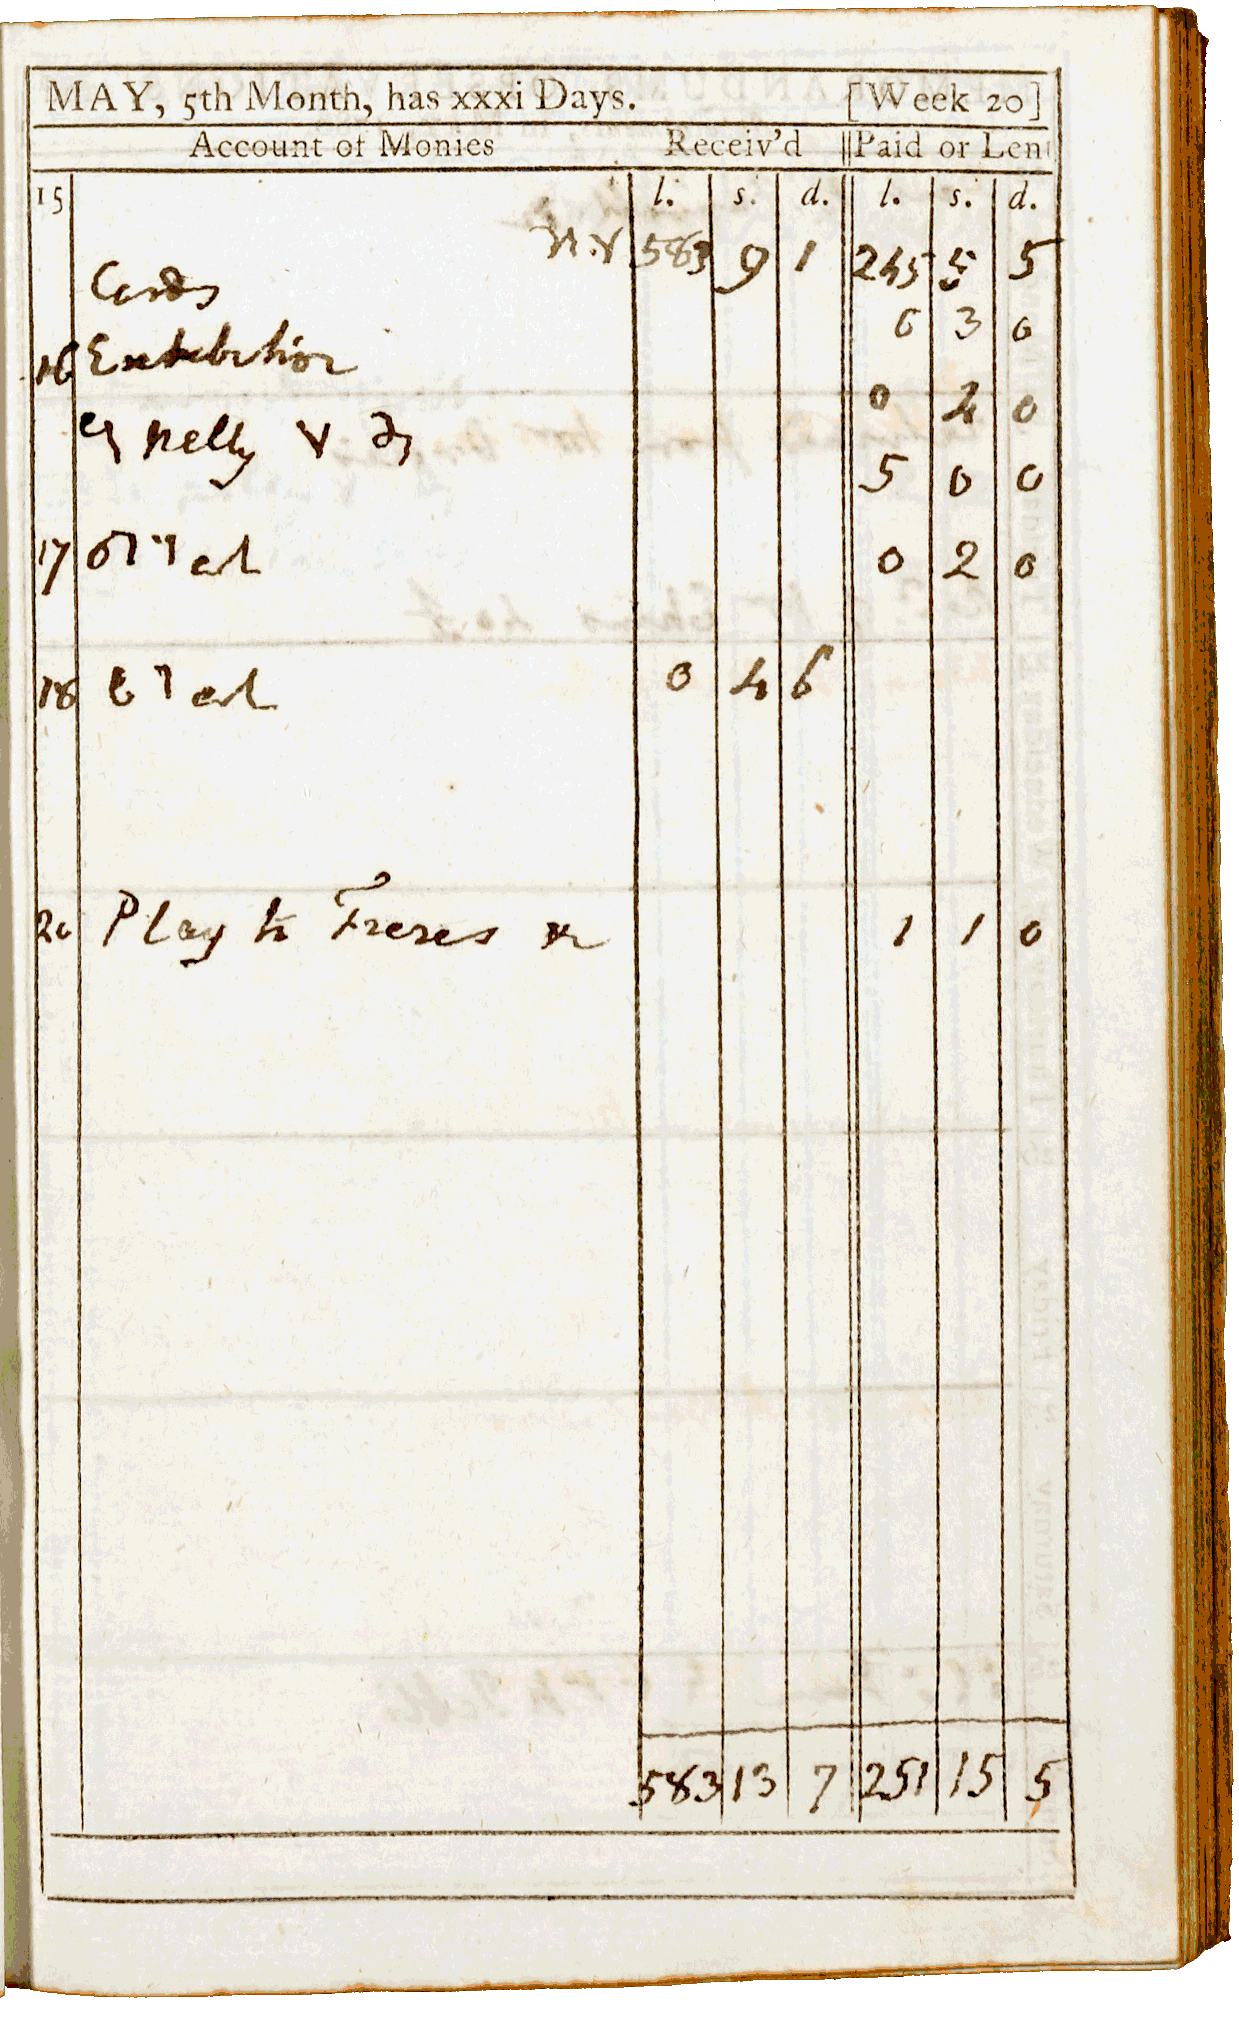 MAY, 5th Month, has xxxi Days. [Week 20]
Account of Monies Receiv'd Paid or Len
15 l. s. d. l. s. d.
583 9 1 245 5 5
Cards
0 3 0
16 Exhibition
0 2 0
Nelly
5 0 0
17 0 2 0
18 0 4 6
20 Play 1 1 0
583 13 7 251 15 5